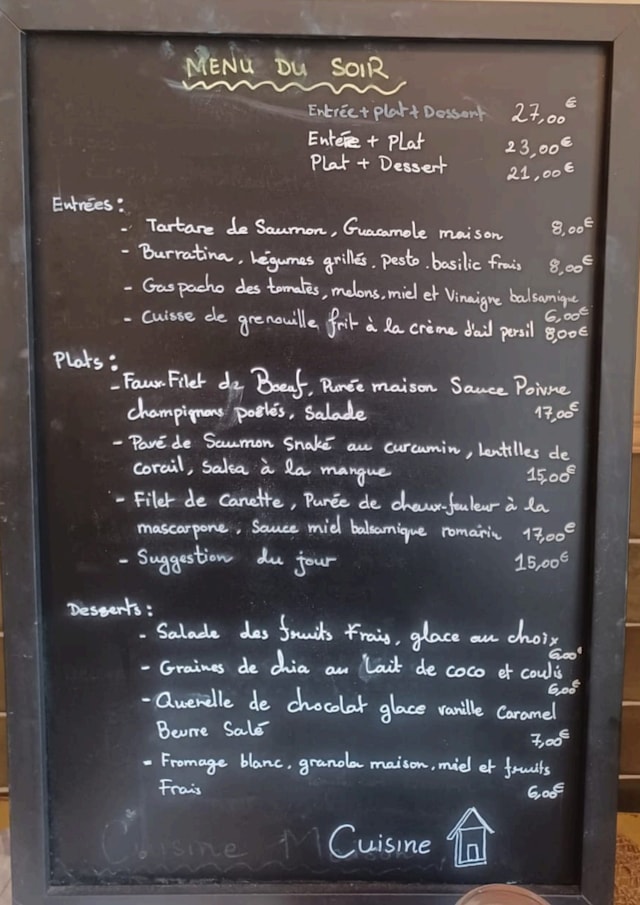 MENU DU SOIR
Entrée + plat + Dessert 27,00€
Entrée + Plat 23,00€
Plat + Dessert 21,00€
Entrées :
- Tartare de Saumon, Guacamole maison 8,00€
- Burratina, légumes grillés, pesto, basilic frais 8,00€
- Gaspacho des tomates, melons, miel et Vinaigre balsamique
6,00€
- Cuisse de grenouille frit à la crème d'ail persil 8,00€
Plats :
- Faux-Filet de Boeuf, Purée maison Sauce Poivre
champignons poêlés, Salade 17,00€
- Pavé de Saumon Snaké au curcumin, lentilles de
corail, Salsa à la mangue 15,00€
- Filet de Canette, Purée de choux-fouleur à la
mascarpone, Sauce miel balsamique romarin 17,00€
- Suggestion du jour 15,00€
Desserts :
- Salade des fruits Frais, glace au choix
6,00€
- Graines de chia au lait de coco et coulis
6,00€
- Querelle de chocolat glace vanille Caramel
Beurre Salé 7,00€
- Fromage blanc, granola maison, miel et fruits
Frais 6,00€
Cuisine